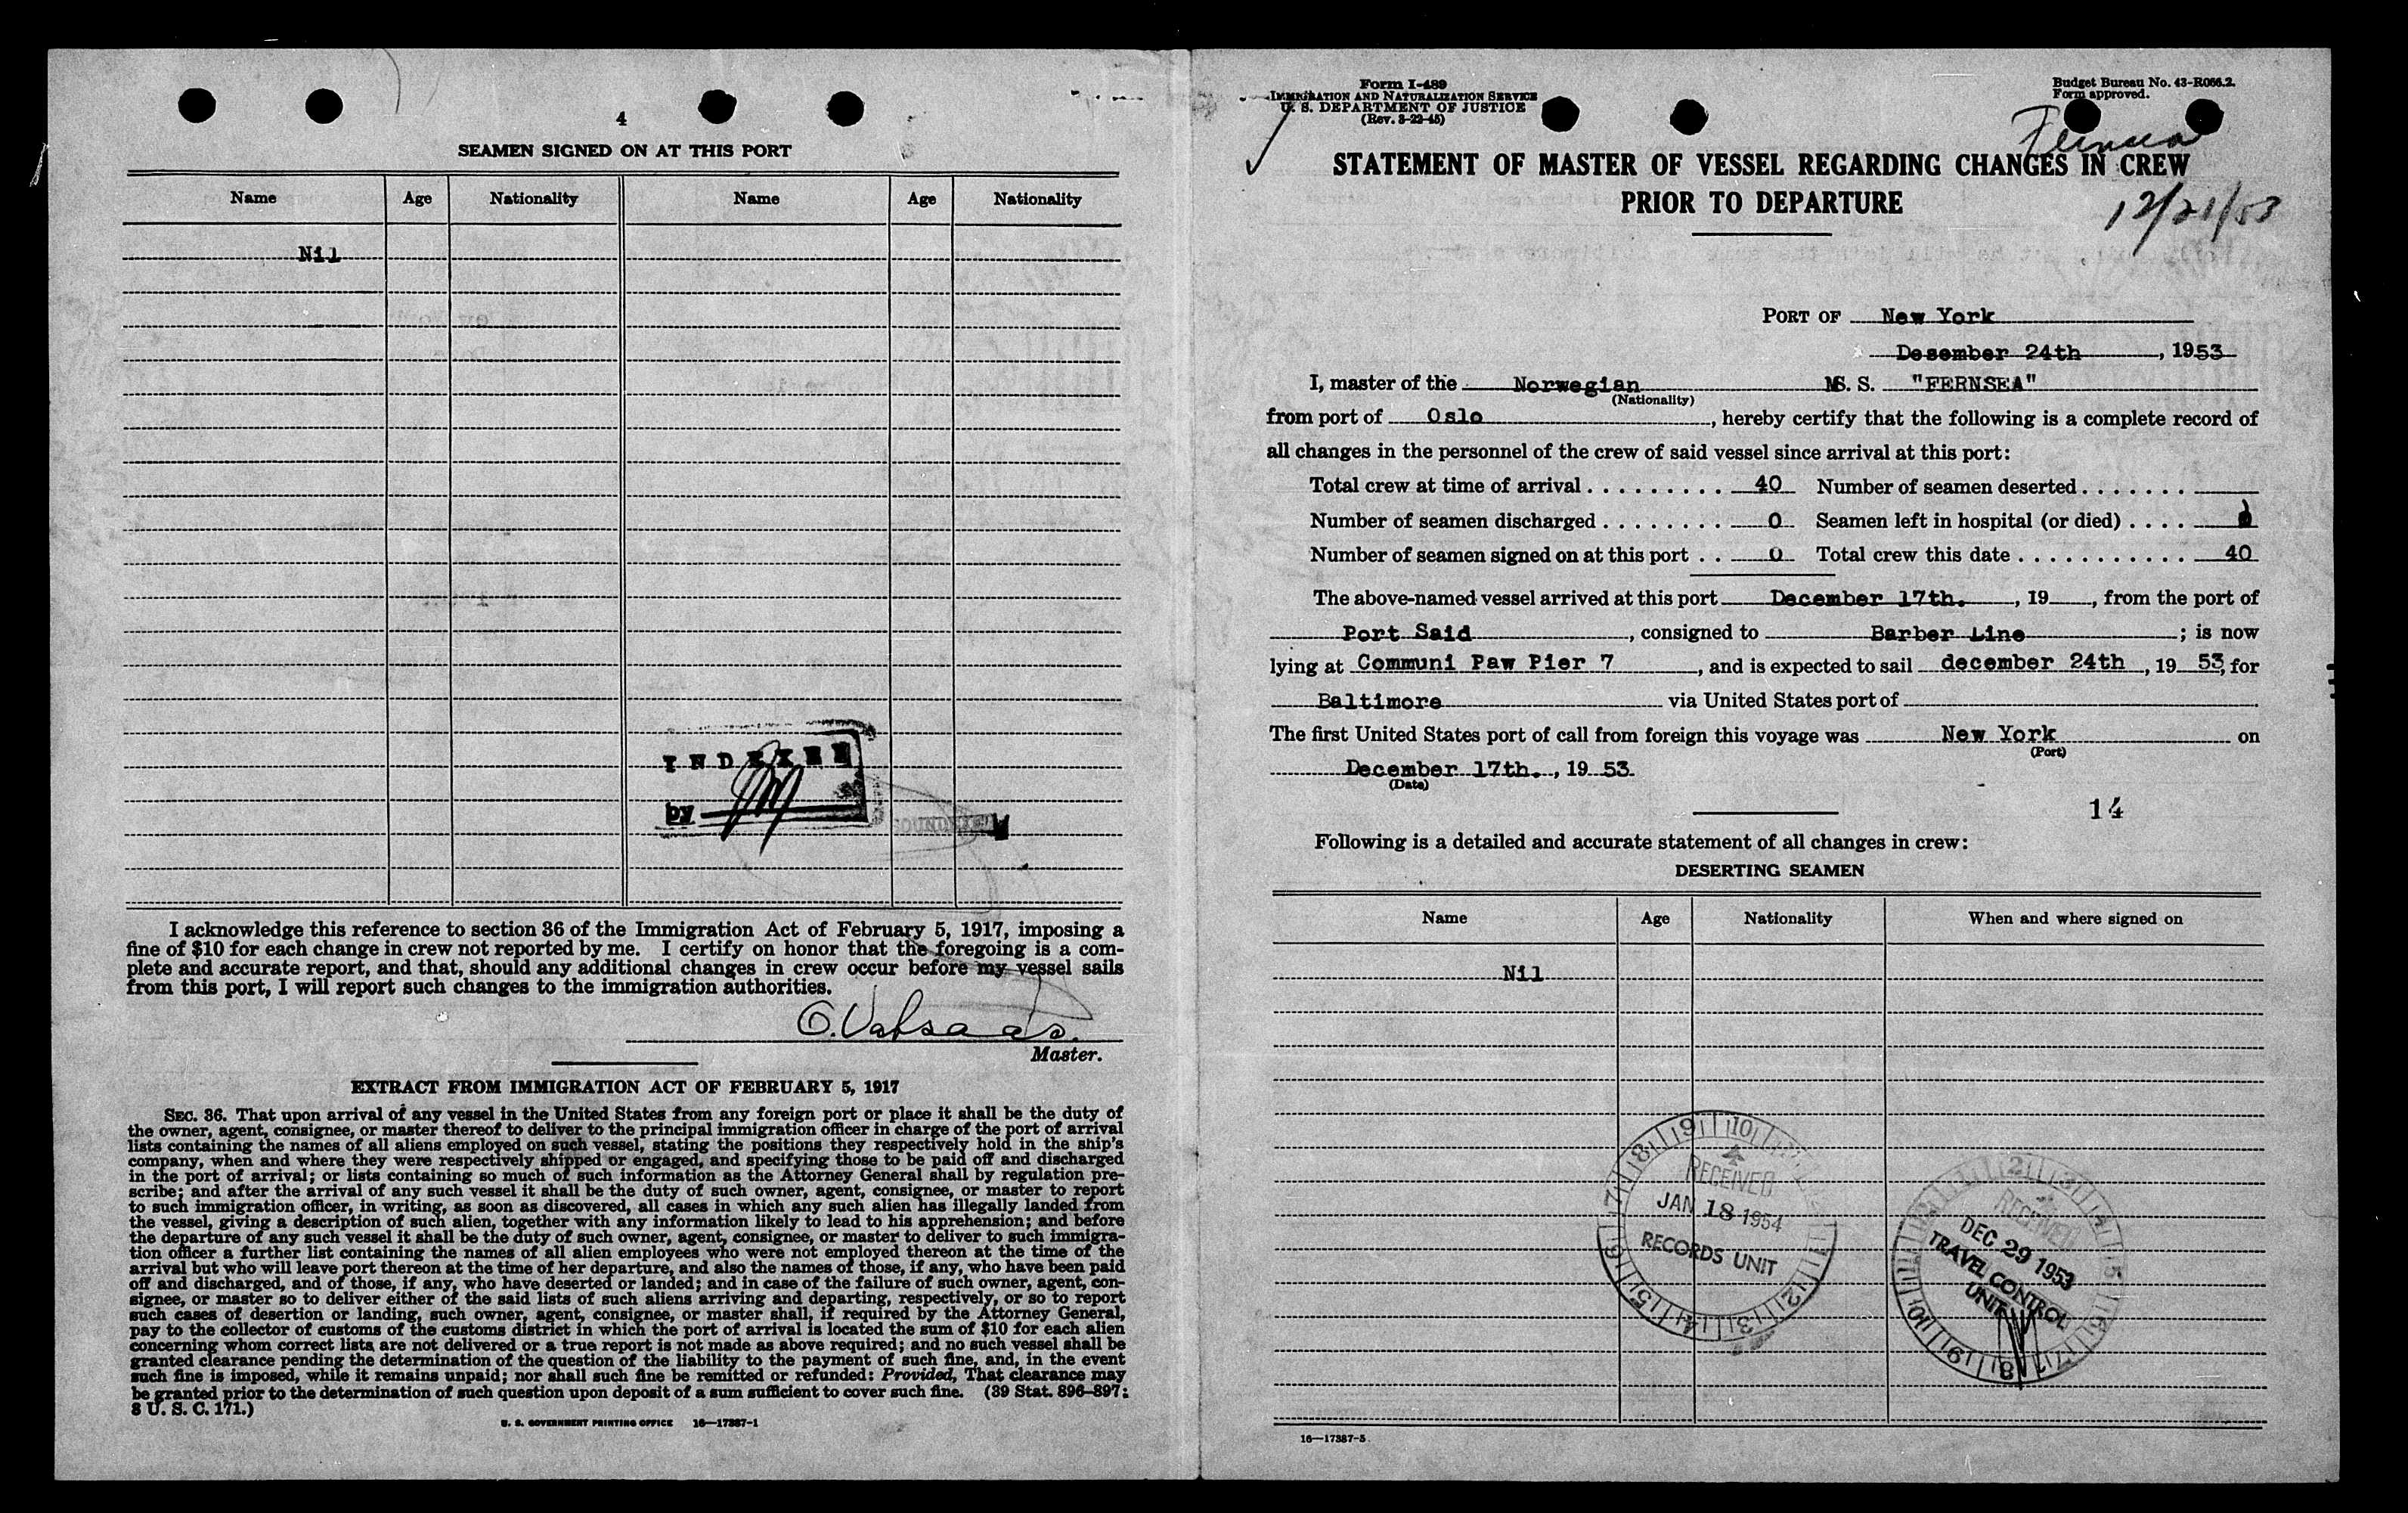 4
SEAMEN SIGNED ON AT THIS PORT
Name Age Nationality Name Age Nationality
Nil
INDEXED
by
I acknowledge this reference to section 36 of the Immigration Act of February 5, 1917, imposing a
fine of $10 for each change in crew not reported by me. I certify on honor that the foregoing is a com-
plete and accurate report, and that, should any additional changes in crew occur before my vessel sails
from this port, I will report such changes to the immigration authorities.
Master.
EXTRACT FROM IMMIGRATION ACT OF FEBRUARY 5, 1917
SEC. 36. That upon arrival of any vessel in the United States from any foreign port or place it shall be the duty of
the owner, agent, consignee, or master thereof to deliver to the principal immigration officer in charge of the port of arrival
lists containing the names of all aliens employed on such vessel, stating the positions they respectively hold in the ship's
company, when and where they were respectively shipped or engaged, and specifying those to be paid off and discharged
in the port of arrival; or lists containing so much of such information as the Attorney General shall by regulation pre-
scribe; and after the arrival of any such vessel it shall be the duty of such owner, agent, consignee, or master to report
to such immigration officer, in writing, as soon as discovered, all cases in which any such alien has illegally landed from
the vessel, giving a description of such alien, together with any information likely to lead to his apprehension; and before
the departure of any such vessel it shall be the duty of such owner, agent, consignee, or master to deliver to such immigra-
tion officer a further list containing the names of all alien employees who were not employed thereon at the time of the
arrival but who will leave port thereon at the time of her departure, and also the names of those, if any, who have been paid
off and discharged, and of those, if any, who have deserted or landed; and in case of the failure of such owner, agent, con-
signee, or master so to deliver either of the said lists of such aliens arriving and departing, respectively, or so to report
such cases of desertion or landing, such owner, agent, consignee, or master shall, if required by the Attorney General,
pay to the collector of customs of the customs district in which the port of arrival is located the sum of $10 for each alien
concerning whom correct lists are not delivered or a true report is not made as above required; and no such vessel shall be
granted clearance pending the determination of the question of the liability to the payment of such fine, and, in the event
such fine is imposed, while it remains unpaid; nor shall such fine be remitted or refunded: Provided, That clearance may
be granted prior to the determination of such question upon deposit of a sum sufficient to cover such fine. (39 Stat. 896-897;
8 U. S. C. 171.)
U. S. GOVERNMENT PRINTING OFFICE 16—17387-1
Form I-489
IMMIGRATION AND NATURALIZATION SERVICE
U. S. DEPARTMENT OF JUSTICE
(Rev. 3-22-45)
Budget Bureau No. 43-R066.2.
Form approved.
Fernsea
STATEMENT OF MASTER OF VESSEL REGARDING CHANGES IN CREW
PRIOR TO DEPARTURE
12/21/53
PORT OF New York
Desember 24th, 1953
I, master of the Norwegian MS. S. "FERNSEA"
(Nationality)
from port of Oslo, hereby certify that the following is a complete record of
all changes in the personnel of the crew of said vessel since arrival at this port:
Total crew at time of arrival 40 Number of seamen deserted
Number of seamen discharged 0 Seamen left in hospital (or died)
Number of seamen signed on at this port 0 Total crew this date 40
The above-named vessel arrived at this port December 17th., 19, from the port of
Port Said, consigned to Barber Line; is now
lying at Communi Paw Pier 7, and is expected to sail december 24th, 19 53, for
Baltimore via United States port of
The first United States port of call from foreign this voyage was New York on
(Port)
December 17th., 19 53
(Date)
14
Following is a detailed and accurate statement of all changes in crew:
DESERTING SEAMEN
Name Age Nationality When and where signed on
Nil
RECEIVED
JAN 18 1954
RECORDS UNIT
RECEIVED
DEC 29 1953
TRAVEL CONTROL
UNIT
16—17387-5